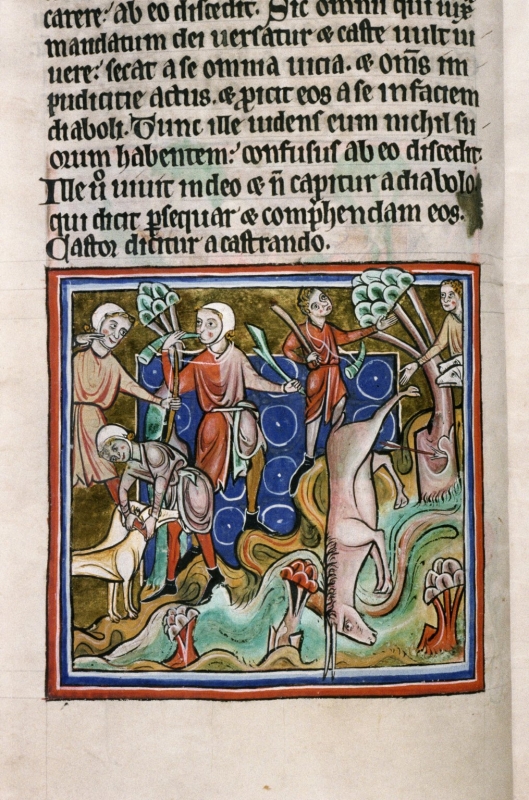 carere: ab eo discedit. Sic omnis qui iuxͣ
mandatum dei uersatur & caste uult ui
uere: secat a se omnia uicia. & om̅s im
pudicitie actus. & ꝓicit eos a se in faciem
diaboli. Tunc ille uidens eum nichil su
orum habentem: confusus ab eo discedit.
Ille u̅ uiuit in deo & n̅ capitur a diabolo
qui dicit ꝑsequar & comp̅hendam eos.
Castor dicitur a castrando.